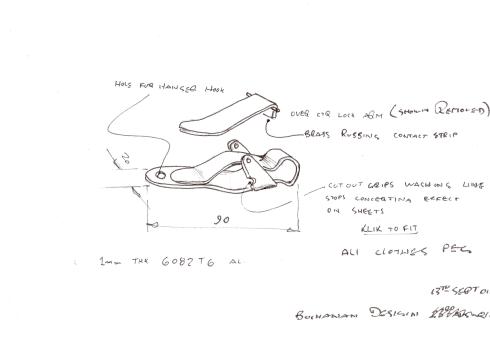 HOLE FOR HANGER HOOK
OVER CTR LOCK ARM (SHOWN REMOVED)
BRASS RUBBING CONTACT STRIP
20
CUT OUT GRIPS WASHING LINE
STOPS CONCERTING EFFECT
ON SHEETS
90
KLIK TO FIT
ALI CLOTHES PEG
1mm THK 6082 T6 AL.
13TH SEPT 01
BUCHANAN DESIGN